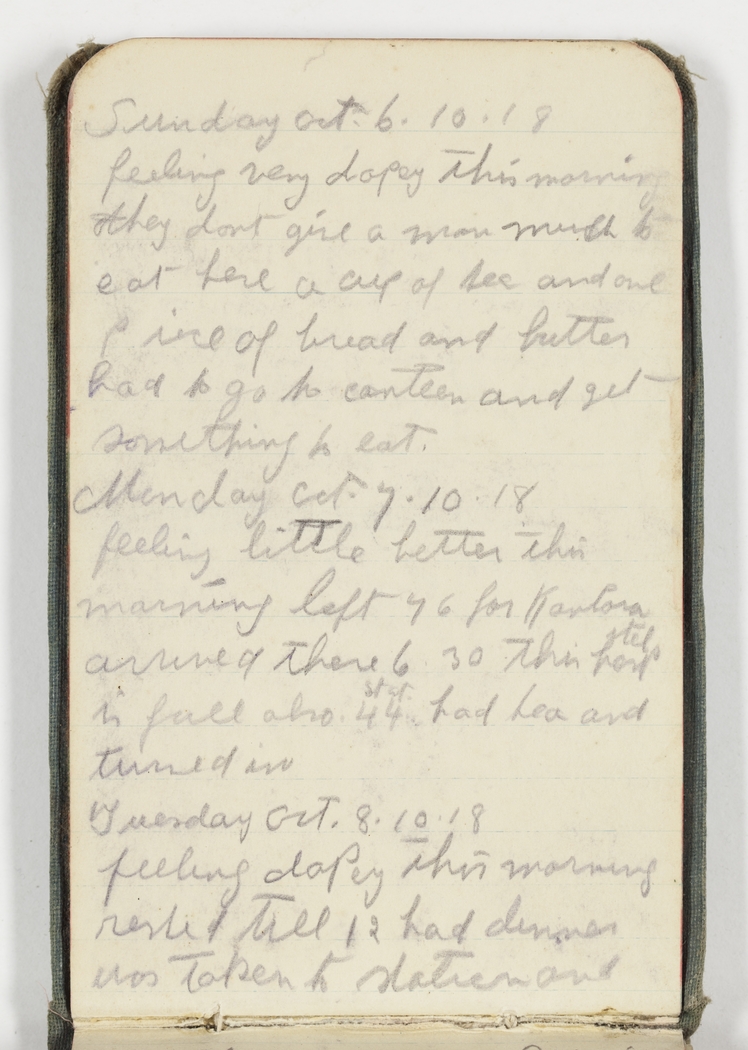 Sunday Oct. 6. 10. 18
feeling very dopey this morning
they dont give a man much to
eat here a cup of tea and one
piece of bread and butter
had to go to canteen and get
something to eat.
Monday Oct. 7. 10. 18
feeling little better this
morning left 76 for Kantara
arrived there 6 30 this
is full also. 44 stat. had tea and
turned in
Tuesday Oct. 8. 10. 18
feeling dopey this morning
rested till 12 had dinner
was taken to station and